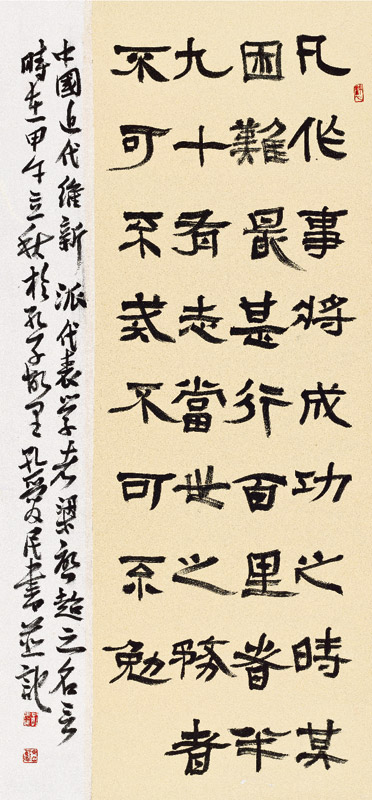 凡作事將成功之時其
困難最甚行百里者半
九十有志當世之務者
不可不戒不可不勉
中國近代維新派代表学者梁啟超之名言
時在甲午立秋於孔子故里孔愛民書並記